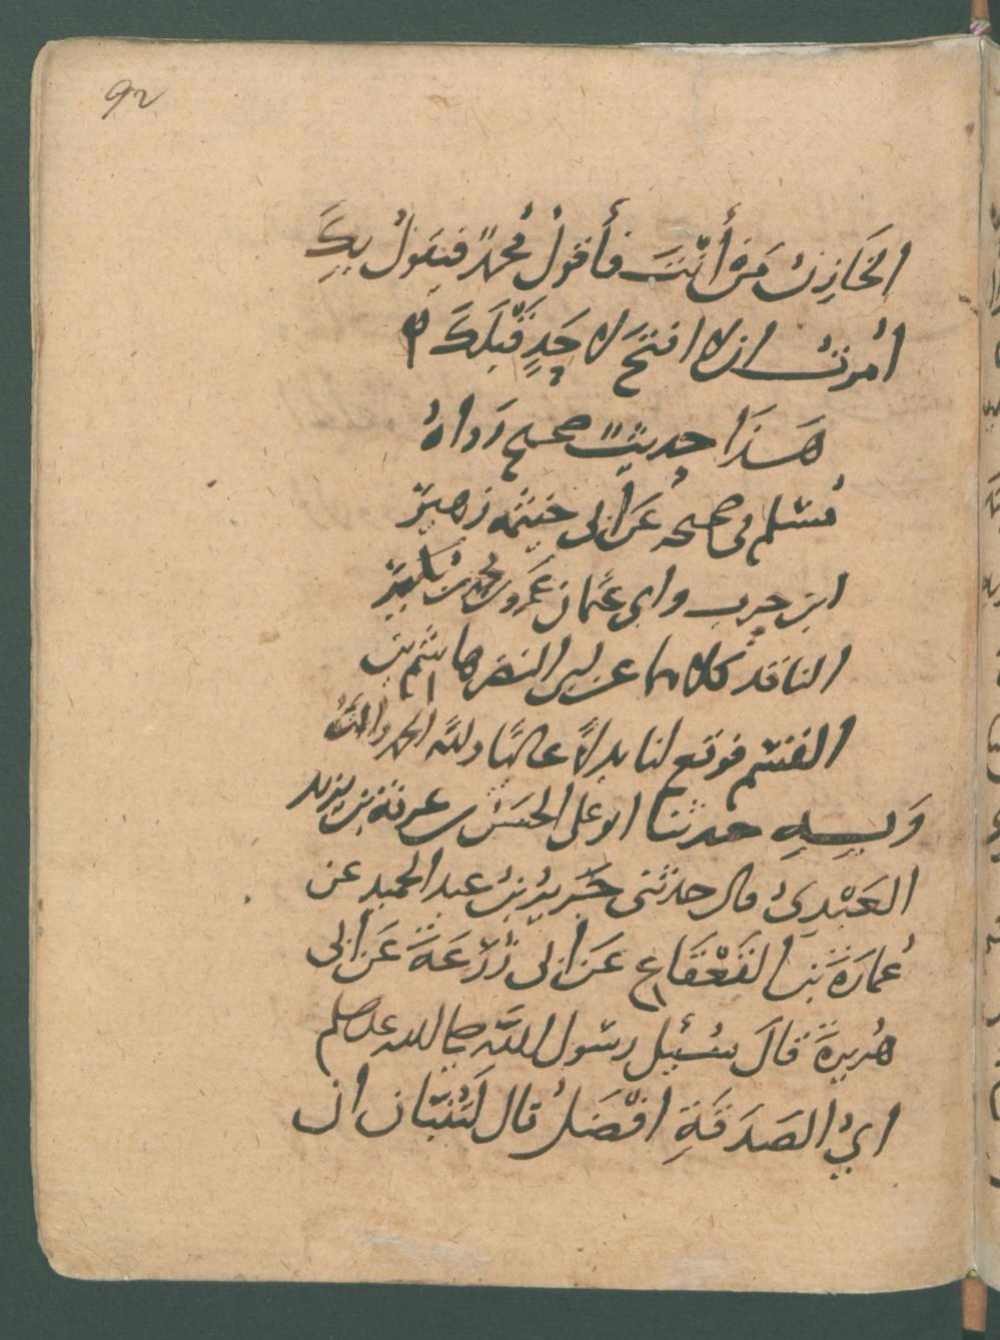 92
الخَازِنُ مَنْ أَنْتَ فَأَقولُ مُحمدٌ فيَقولُ بِكَ
أُمرتُ ان لا افتحَ لاحَدٍ قَبْلَكَ
هَذَا حديثٌ صحيح رَوَاهُ
مُسْلم في صحيحه عَن أبي خيثمه زهير
ابن حرب وابي عثمان عَمرو بن محمد بن بُكَير
الناقد كلاهما عن ابي النضر هاشم بن
القسم فوقع لنا بدلًا عاليًا ولله الحمد والمنَّة
وَبِهِ حدثنا ابو علي الحسَن بن عرفة بن يزيد
العَبْديُ قال حدثني جَرِيرُ بنُ عبد الحميد عن
عُمارَةَ بن القَعْقَاع عَن أبي زُرْعَةَ عَن أبي
هُريرةَ قالَ سُئِل رسول اللَّه صلى الله عليه وسلم
ايُّ الصَدَقَةِ افْضَلُ قال لَتُنَبَّأن ان